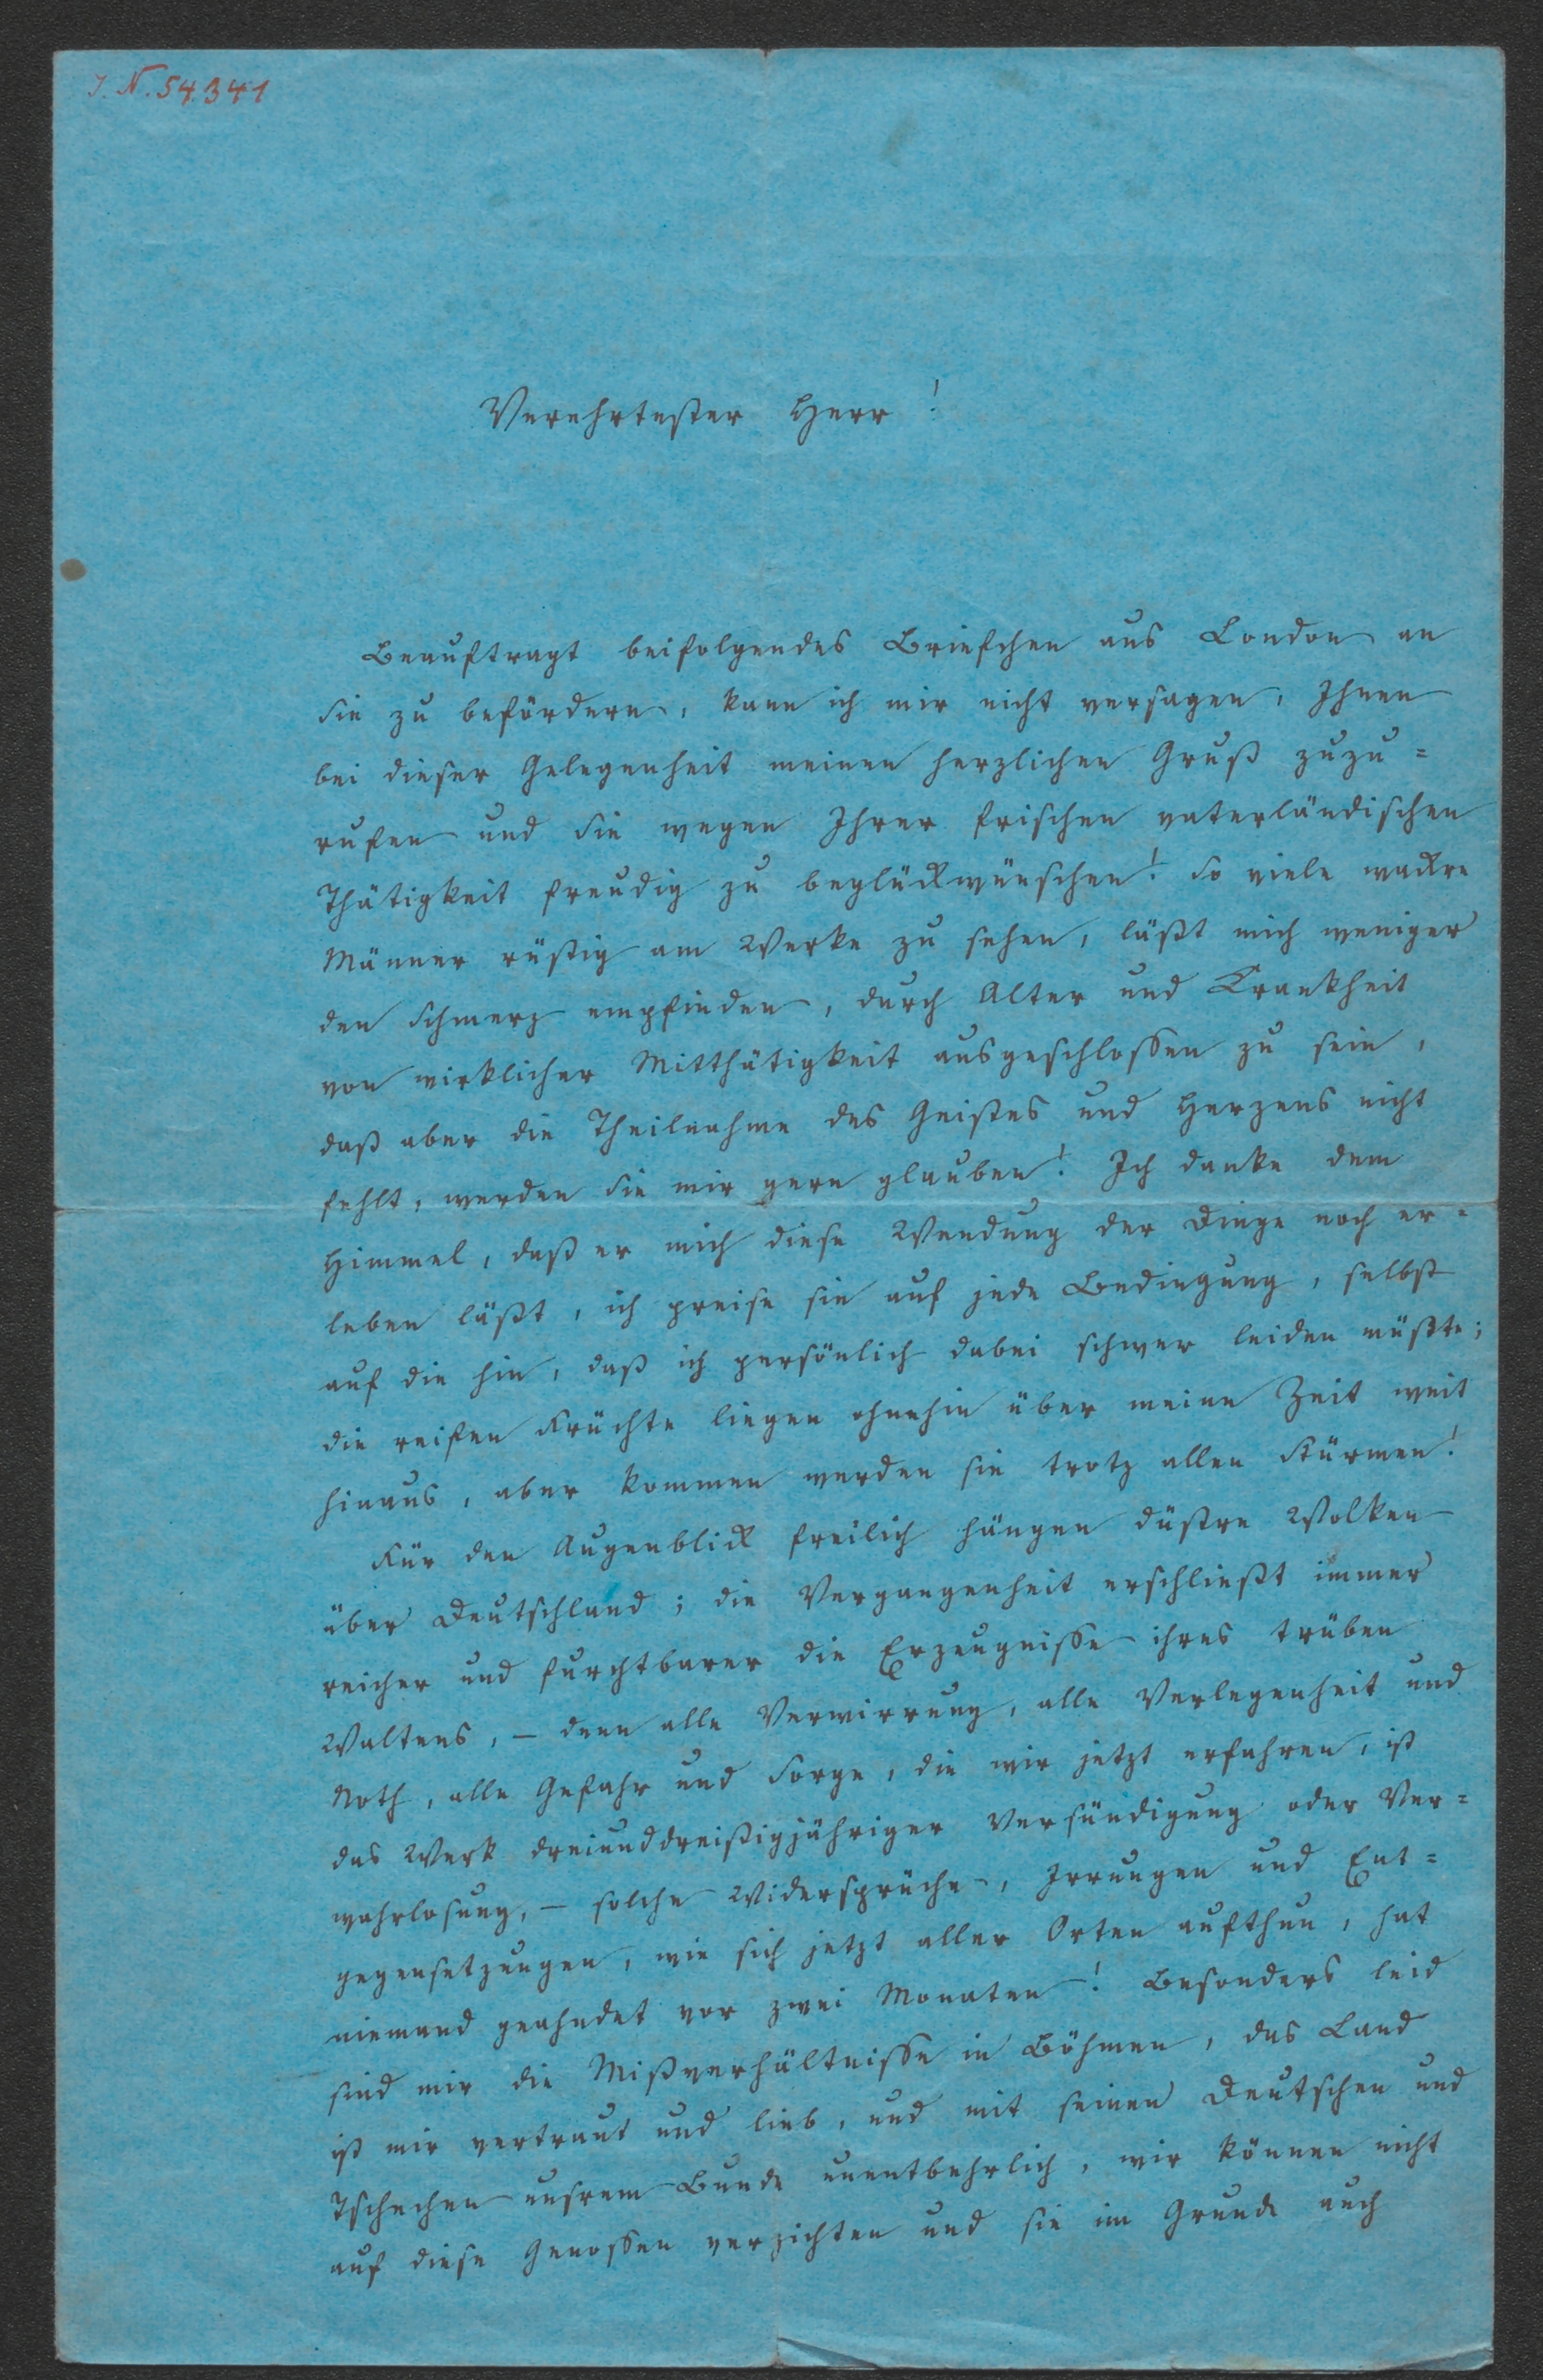 I. N. 54.341
Verehrtester Herr!
Beauftragt beifolgendes Briefchen aus London an
Sie zu befördern, kann ich mir nicht versagen, Ihnen
bei dieser Gelegenheit meinen herzlichen Gruß zuzu=
rufen und Sie wegen Ihrer frischen vaterländischen
Thätigkeit freudig zu beglückwünschen! So viele wackre
Männer rüstig am Werke zu sehen, läßt mich weniger
den Schmerz empfinden, durch Alter und Krankheit
von wirklicher Mitthätigkeit ausgeschlossen zu sein,
daß aber die Theilnahme des Geistes und Herzens nicht
fehlt, werden Sie mir gern glauben! Ich danke dem
Himmel, daß er mich diese Wendung der Dinge noch er=
leben läßt, ich preise sie auf jede Bedingung, selbst
auf die hin, daß ich persönlich dabei schwer leiden müßte;
die reifen Früchte liegen ohnehin über meine Zeit weit
hinaus, aber kommen werden sie trotz allen Stürmen!
Für den Augenblick freilich hängen düstre Wolken
über Deutschland; die Vergangenheit erschließt immer
reicher und furchtbarer die Erzeugnisse ihres trüben
Waltens, – denn alle Verwirrung, alle Verlegenheit und
Noth, alle Gefahr und Sorge, die wir jetzt erfahren, ist
das Werk dreiunddreißigjähriger Versündigung oder Ver=
wahrlosung, – solche Widersprüche, Irrungen und Ent=
gegensetzungen, wie sich jetzt aller Orten aufthun, hat
niemand geahndet vor zwei Monaten! Besonders leid
sind mir die Mißverhältnisse in Böhmen, das Land
ist mir vertraut und lieb, und mit seinen Deutschen und
Tschechen unsrem Bunde unentbehrlich, wir können nicht
auf diese Genossen verzichten und sie im Grunde auch